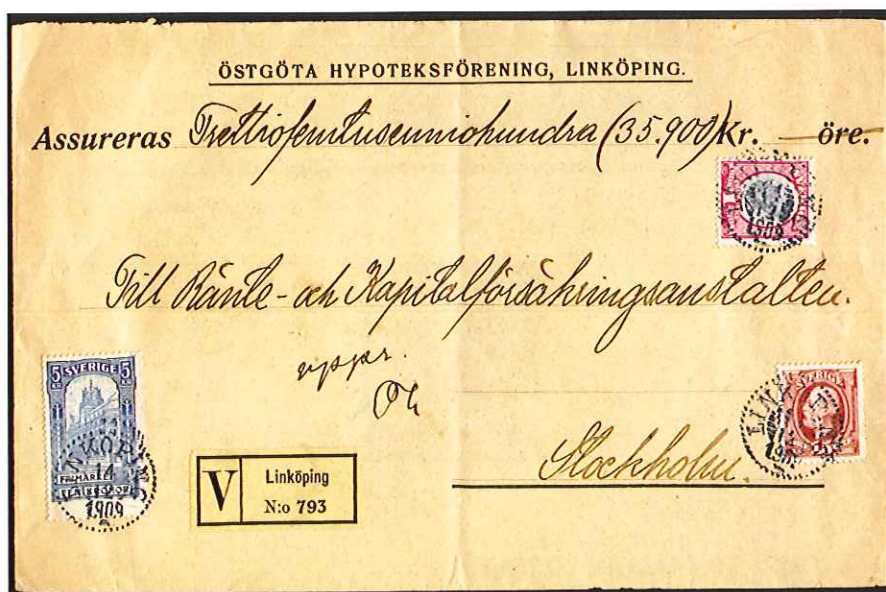 ÖSTGÖTA HYPOTEKSFÖRENING, LINKÖPING.
Assureras Trettiofemtusenniohundra (35.900) Kr. — öre.
1909
Till Ränte- och Kapitalförsäkringsanstalten.
uppr.
5 SVERIGE 5
SVERIGE
LINKÖPING
14
1909
V Linköping
N:o 793
Stockholm.